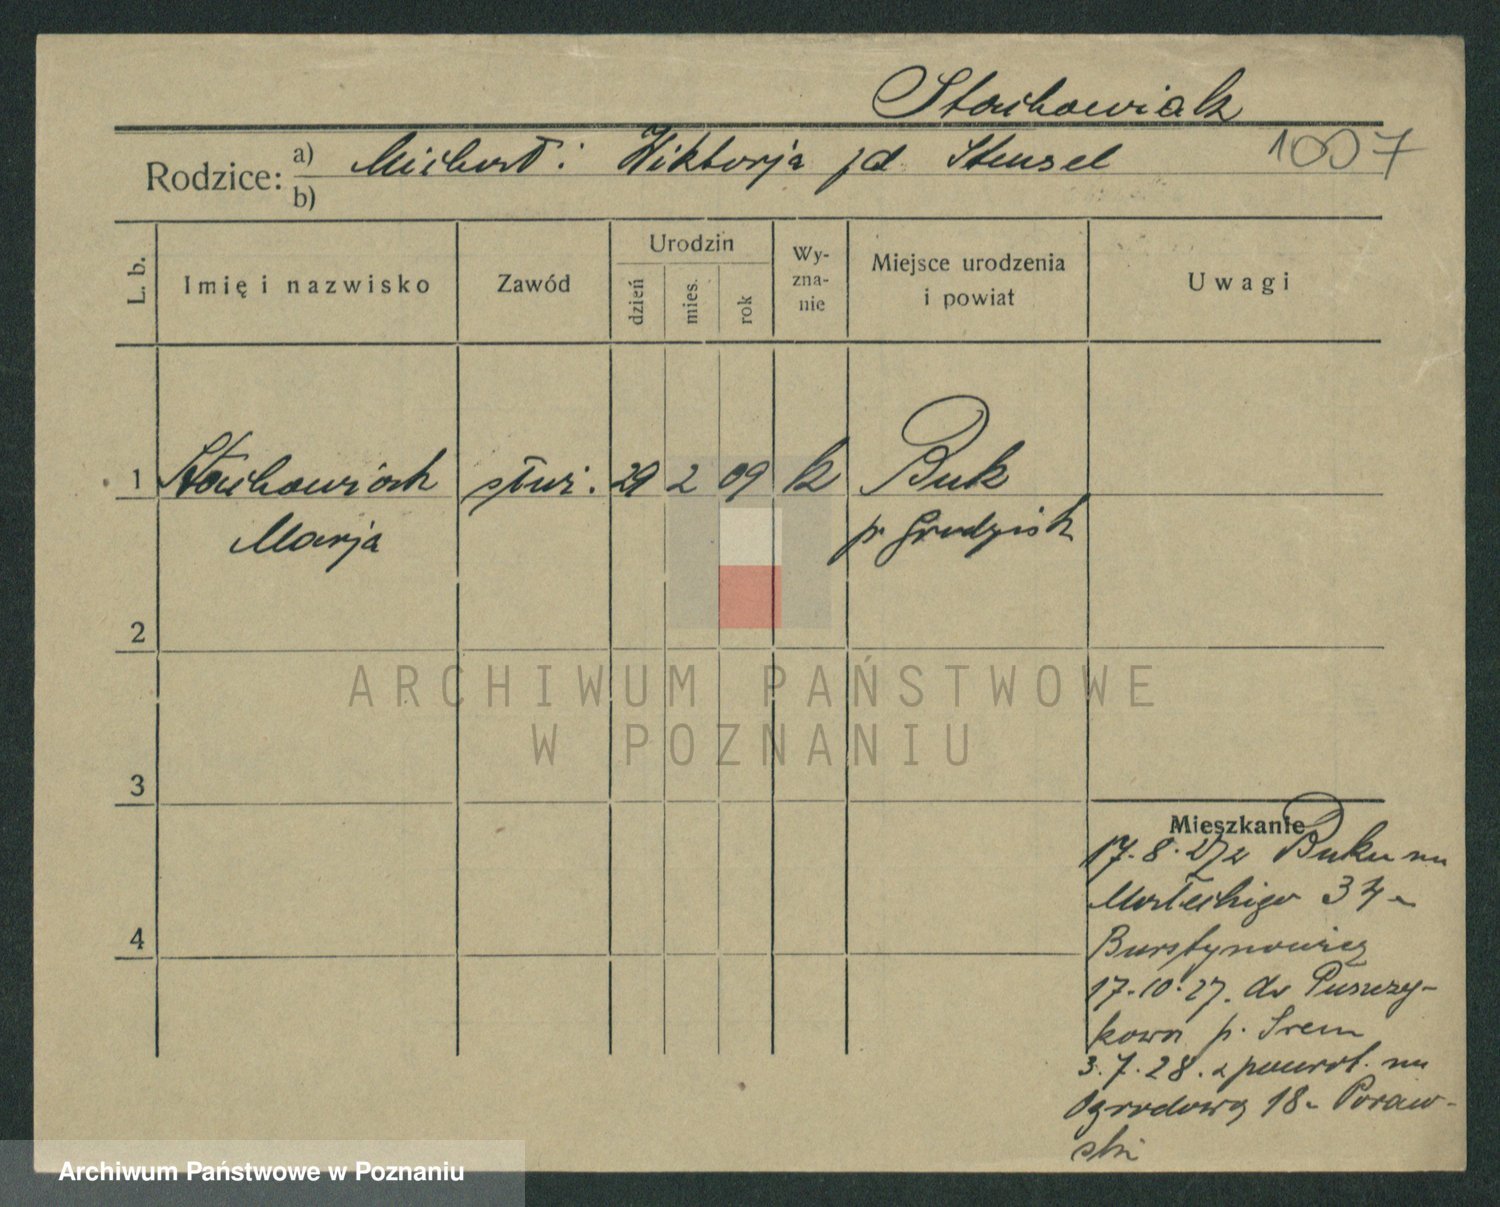 Stachowiak
Rodzice: a) Michał i Wiktorja zd Stensel 1007
b)
L. b. Imię i nazwisko Zawód Urodzin dzień mies. rok Wy-zna-nie Miejsce urodzenia i powiat Uwagi
1 Stachowiak służ. 29 2 09 k Buk
Marja p. Grodzisk
2
3
4
Mieszkanie
17.8.27 z Buku na
Małeckiego 34 u
Burstynowicz
17.10.27. do Puszczy-
kowa p. Śrem
3.7.28. z powrot. na
Ogrodową 18 u Poraw-
ski
ARCHIWUM PAŃSTWOWE
W POZNANIU
Archiwum Państwowe w Poznaniu